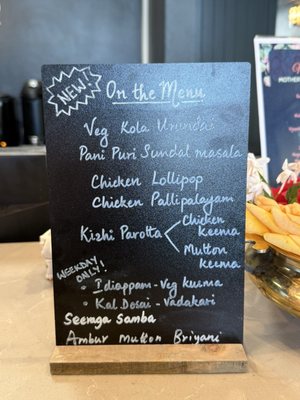 NEW!
On the Menu
Veg Kola Urundai
Pani Puri Sundal masala
Chicken Lollipop
Chicken Pallipalayam
Kizhi Parotta
Chicken
Keema
Mutton
Keema
WEEKDAY
ONLY!
• Idiappam - Veg kurma
• Kal Dosai - Vadakari
Seeraga Samba
Ambur Mutton Briyani
MOTHER